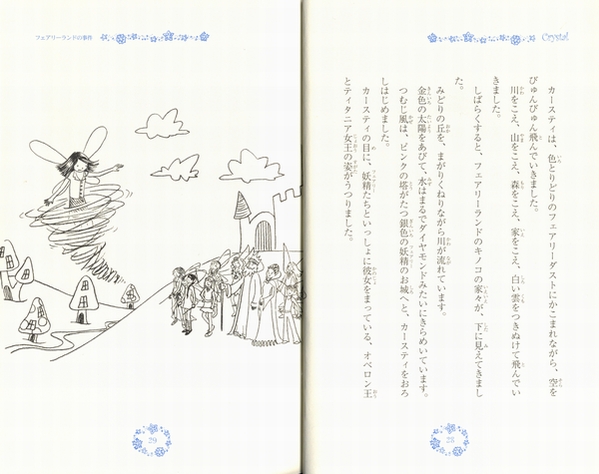 Crystal
カースティは、色とりどりのフェアリーダストにかこまれながら、空を
びゅんびゅん飛んでいきました。
川をこえ、山をこえ、森をこえ、家をこえ、白い雲をつきぬけて飛んでい
きました。
しばらくすると、フェアリーランドのキノコの家々が、下に見えてきまし
た。
みどりの丘を、まがりくねりながら川が流れています。
金色の太陽をあびて、水はまるでダイヤモンドみたいにきらめいています。
つむじ風は、ピンクの塔がたつ銀色の妖精のお城へと、カースティをおろ
しはじめました。
カースティの目に、妖精たちといっしょに彼女をまっている、オベロン王
とティタニア女王の姿がうつりました。
28
フェアリーランドの事件
29